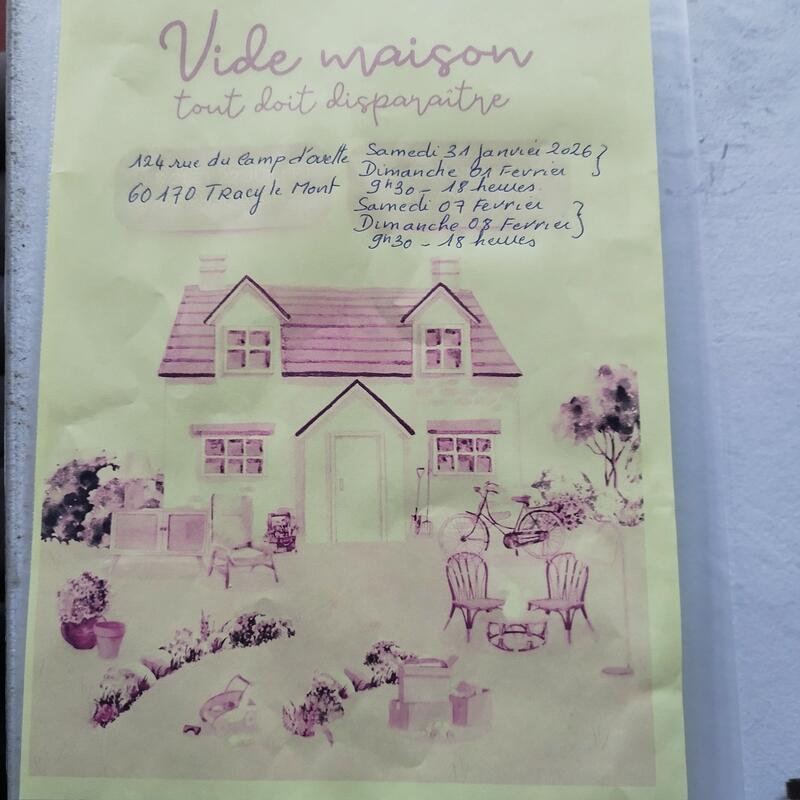 Vide maison
tout doit disparaître
124 rue du Camp d'ovette
60170 Tracy le Mont
Samedi 31 Janvier 2026 }
Dimanche 01 Fevrier
9h30 - 18 heures
Samedi 07 Fevrier }
Dimanche 08 Fevrier
9h30 - 18 heures